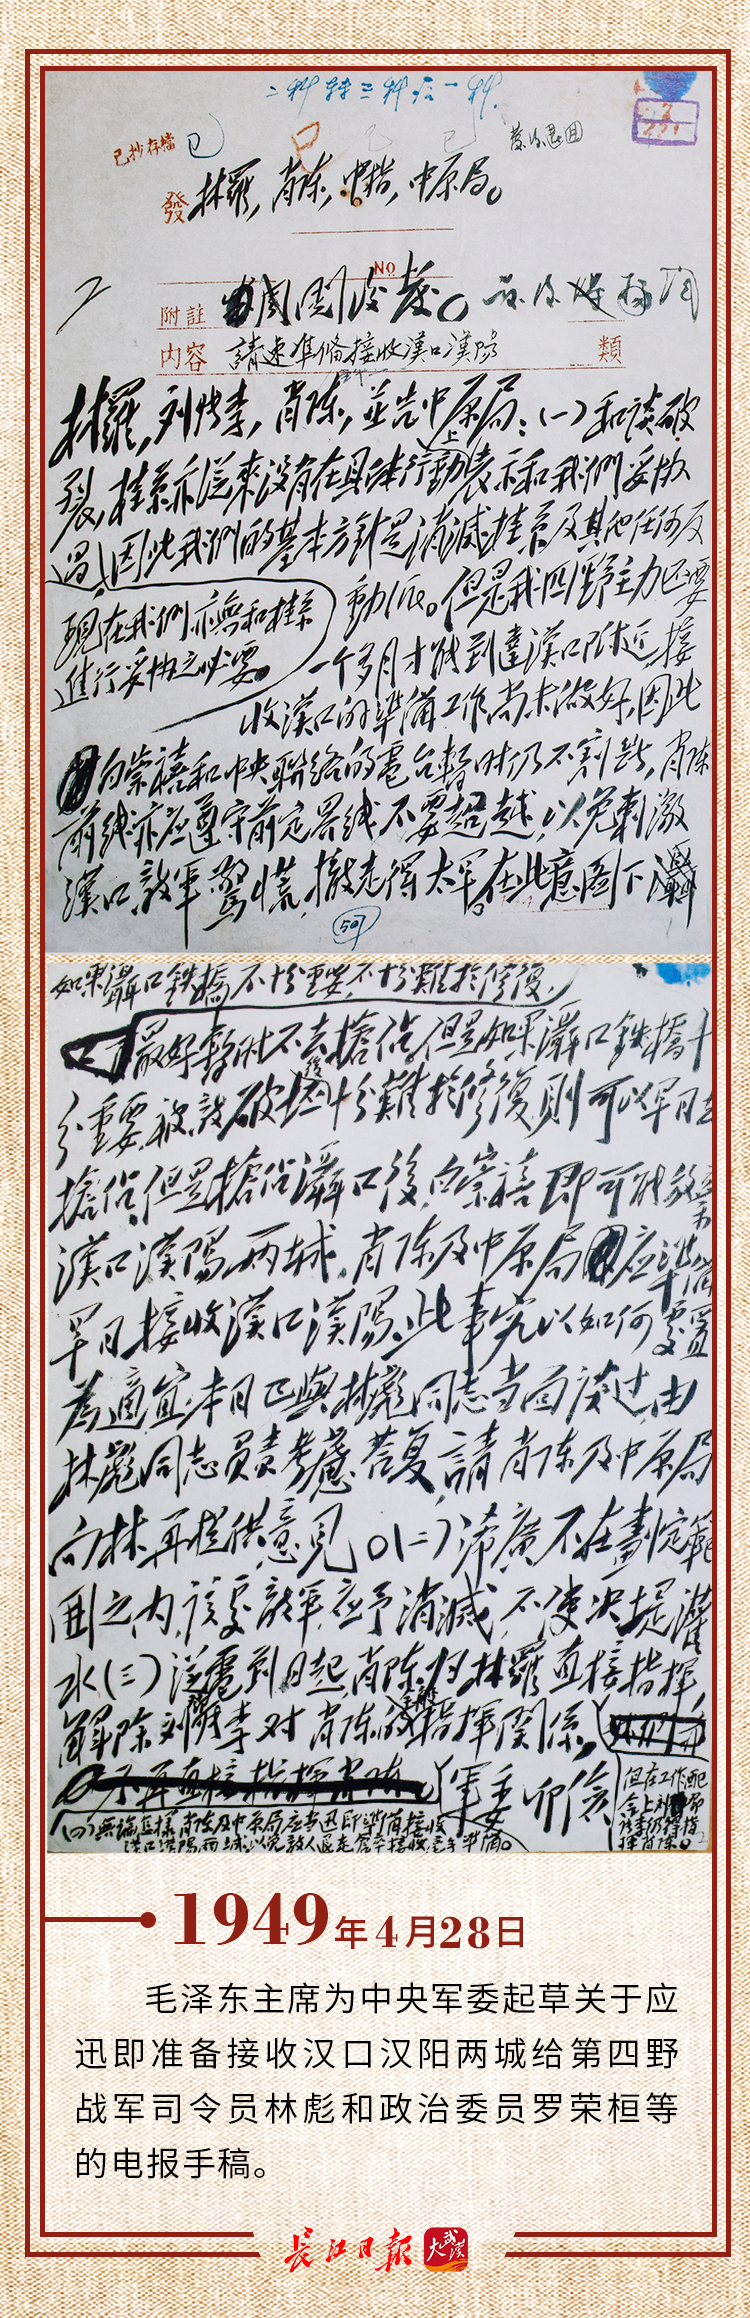 二科转三科后一科.
已抄存檔
發 林羅,肖陈,中指,中原局。
No
附註 周閱後發。
内容 請速準備接收漢口漢陽 類
林羅,刘张李,肖陈,並告中原局:(一)和谈破
裂,桂系亦从來没有在具体行動上表示和我們妥协
過,因此我們的基本方針是消滅桂系及其他任何反
現在我們亦無和桂系
進行妥协之必要。
動派。但是我四野主力还要
一个多月才能到達漢口附近,接
收漢口的準備工作尚未做好,因此
白崇禧和中央聯絡的電台暫时仍不割断,肖陈
前线亦应遵守前定界线不要超越,以免刺激
漢口敵軍驚慌,撤走得太早。在此意图下灄
507
如果灄口鉄橋不十分重要,不十分難於修復,
口最好暫时不去搶佔,但是如果灄口鉄橋十
分重要,被敌破坏後十分難於修復,則可以早日去
搶佔。但是搶佔灄口後,白崇禧即可能放棄
漢口漢陽两城,肖陈及中原局应準備
早日接收漢口漢陽。此事究以如何處置
為適宜,本日已與林彪同志当面谈过,由
林彪同志負責考慮答复,請肖陈及中原局
向林再提供意見。(二)浠廣不在劃定範
围之内,该處敵軍应予消滅,不使决堤灌
水(三)从電到日起,肖陈归林羅直接指揮,
解除刘张李对肖陈的指揮關係,
軍委 卯儉
但在工作配
合上刘
张李仍得指
揮肖陈。
(四)無論怎樣,肖陈及中原局应当迅即準備接收
漢口漢陽两城,以免敌人退走倉卒接收毫無準備。
1949年4月28日
毛泽东主席为中央军委起草关于应
迅即准备接收汉口汉阳两城给第四野
战军司令员林彪和政治委员罗荣桓等
的电报手稿。
长江日报 大武汉